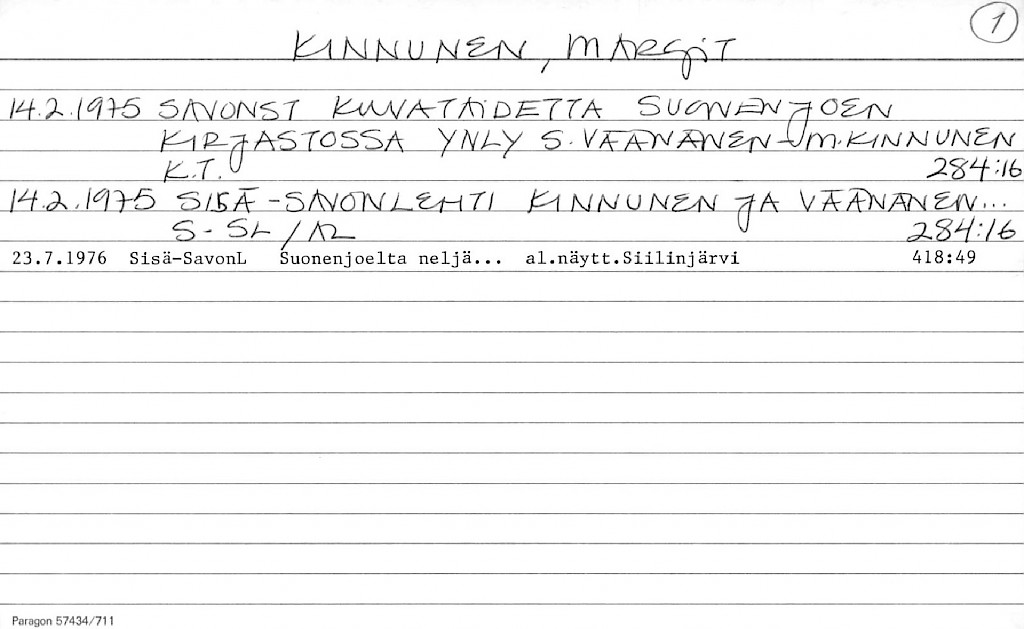 1
KINNUNEN, MARGIT
14.2.1975 SAVONST KUVATAIDETTA SUONENJOEN
KIRJASTOSSA YNLY S.VÄÄNÄNEN-M.KINNUNEN
K.T. 284:16
14.2.1975 SISÄ-SAVONLEHTI KINNUNEN JA VÄÄNÄNEN...
S-SL/AL 284:16
23.7.1976 Sisä-SavonL Suonenjoelta neljä... al.näytt.Siilinjärvi 418:49
Paragon 57434/711